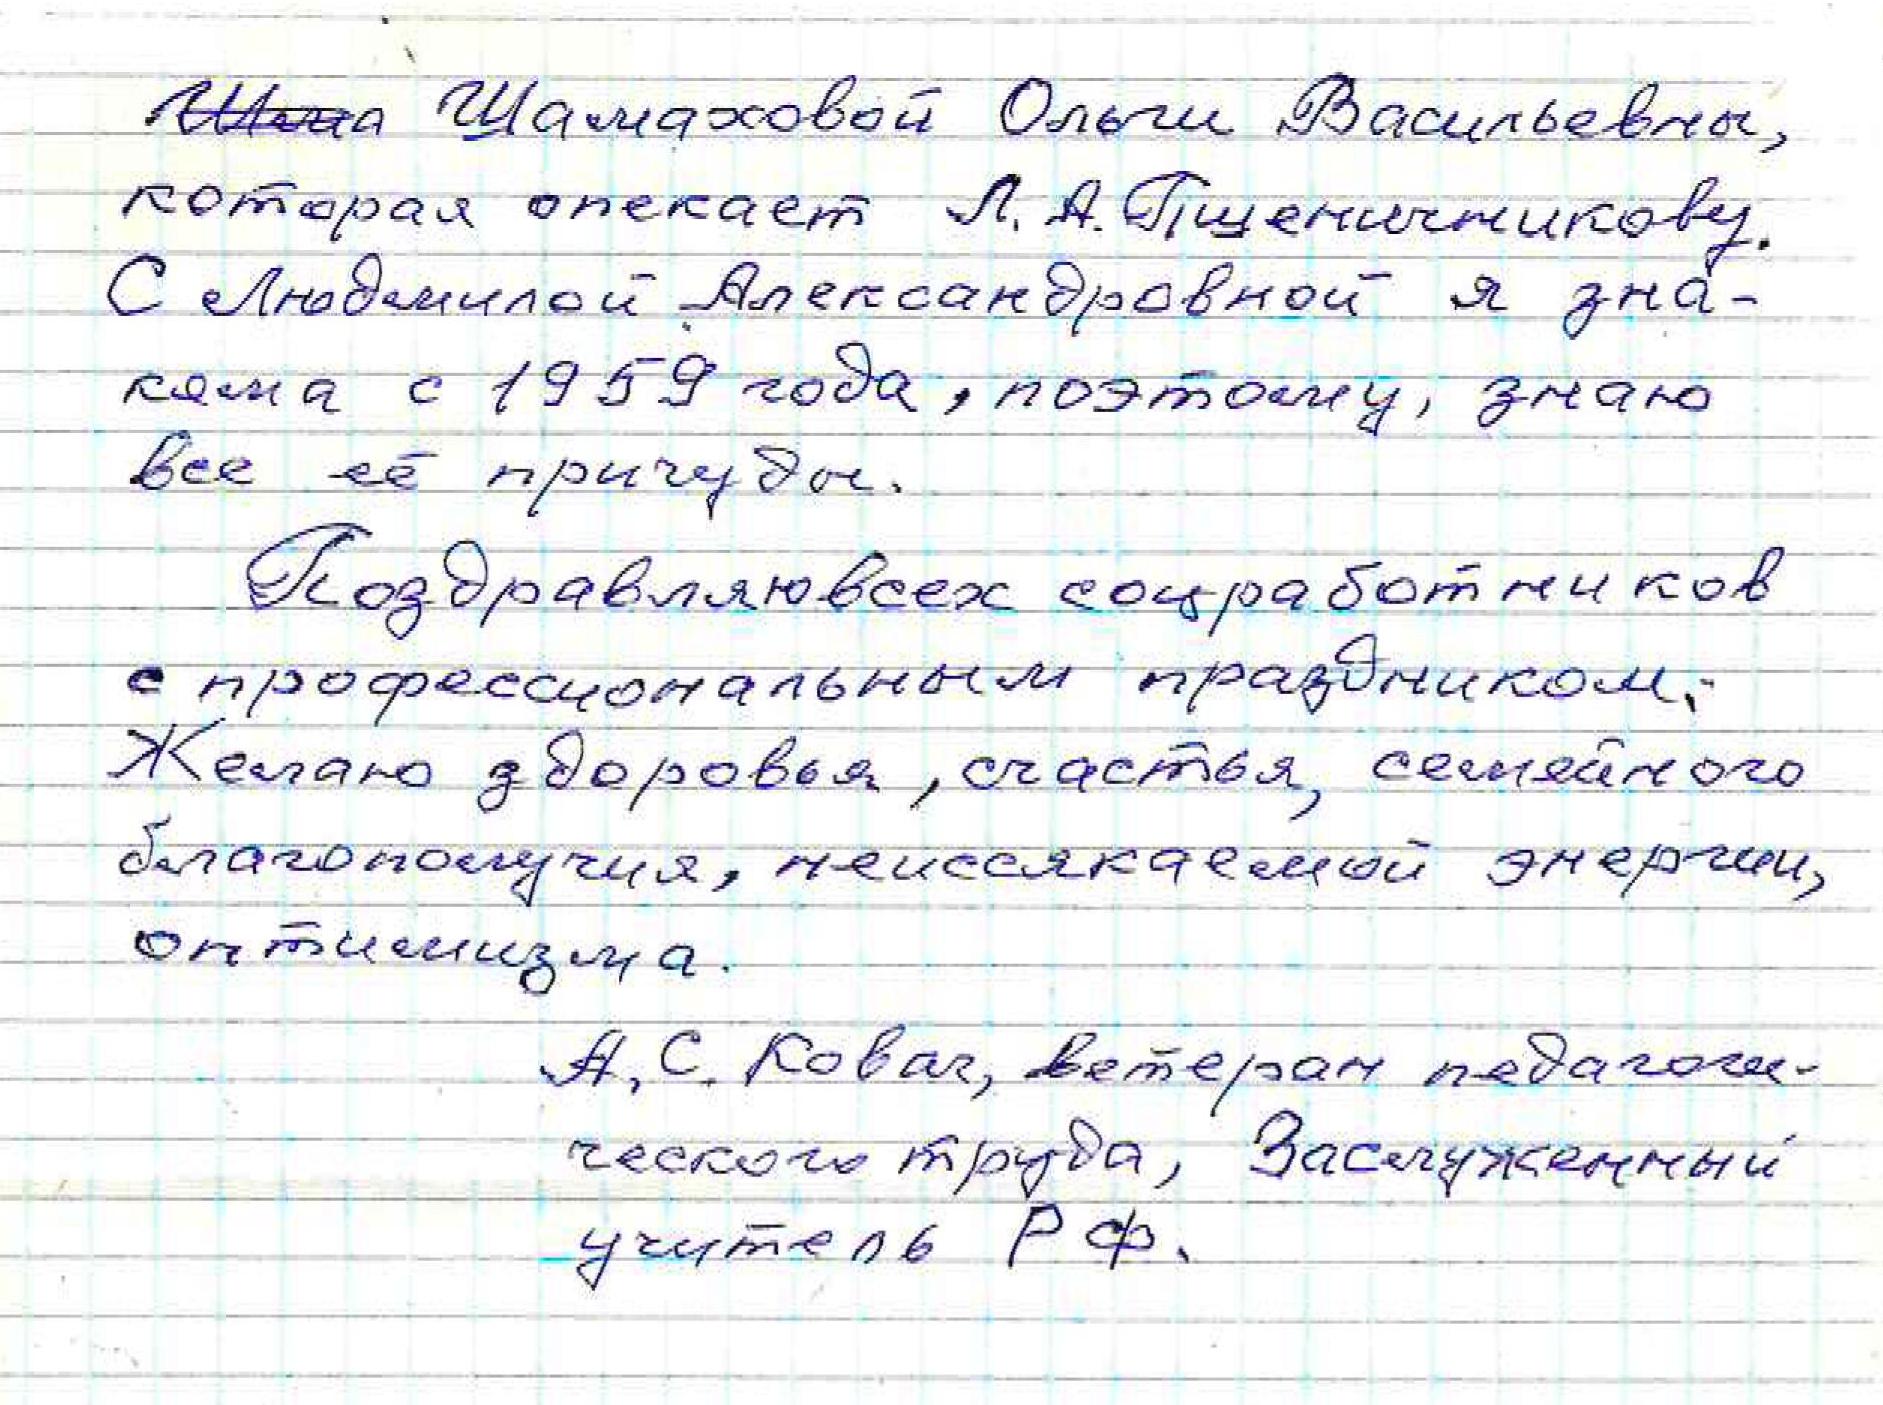 Шамаховой Ольги Васильевны,
которая опекает Л. А. Пшеничникову.
С Людмилой Александровной я зна-
кома с 1959 года, поэтому, знаю
все её причуды.
Поздравляю всех соцработников
с профессиональным праздником.
Желаю здоровья, счастья, семейного
благополучия, неиссякаемой энергии,
оптимизма.
А. С. Ковач, ветеран педагоги-
ческого труда, Заслуженный
учитель РФ.